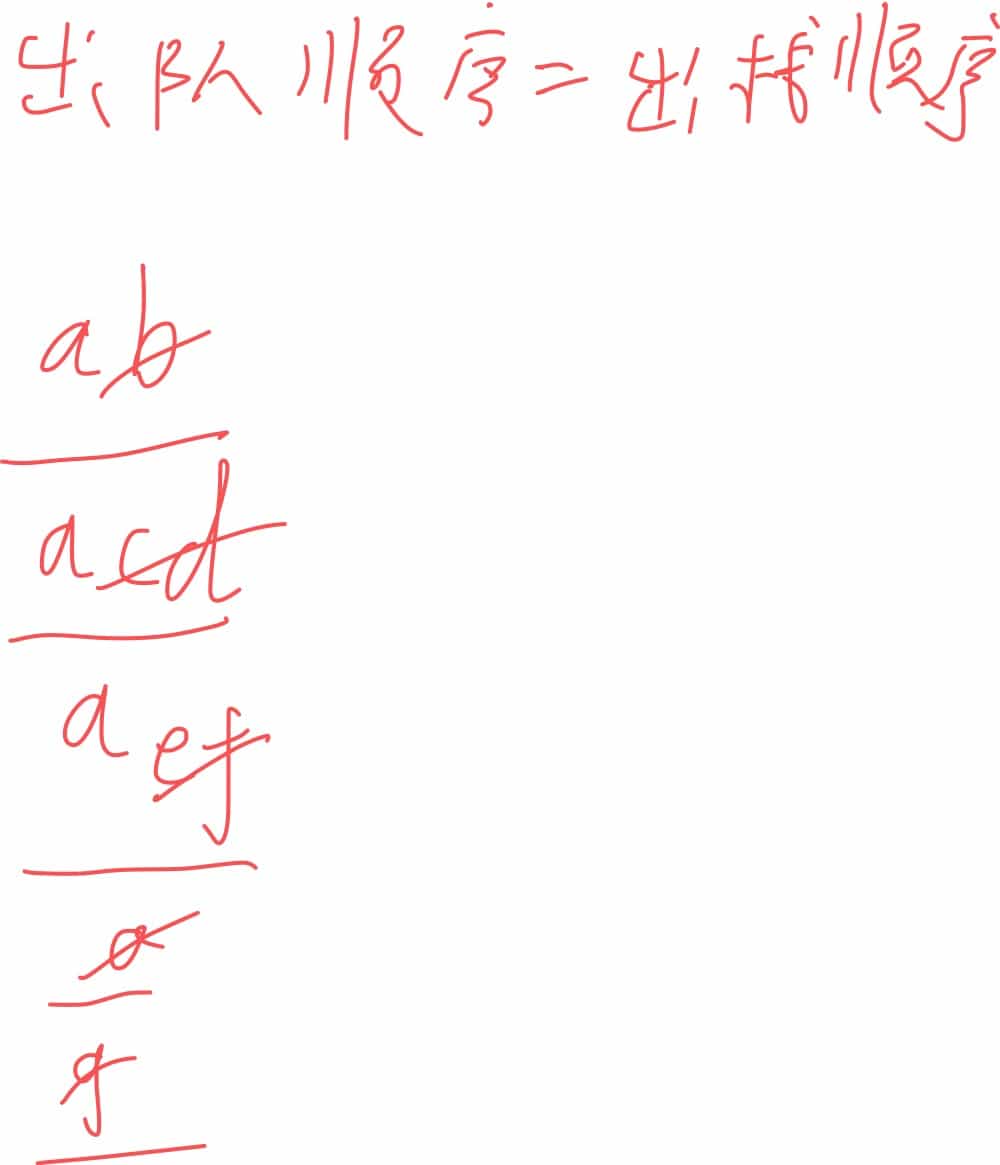 出队顺序=出栈顺序
ab
acd
aef
a
g